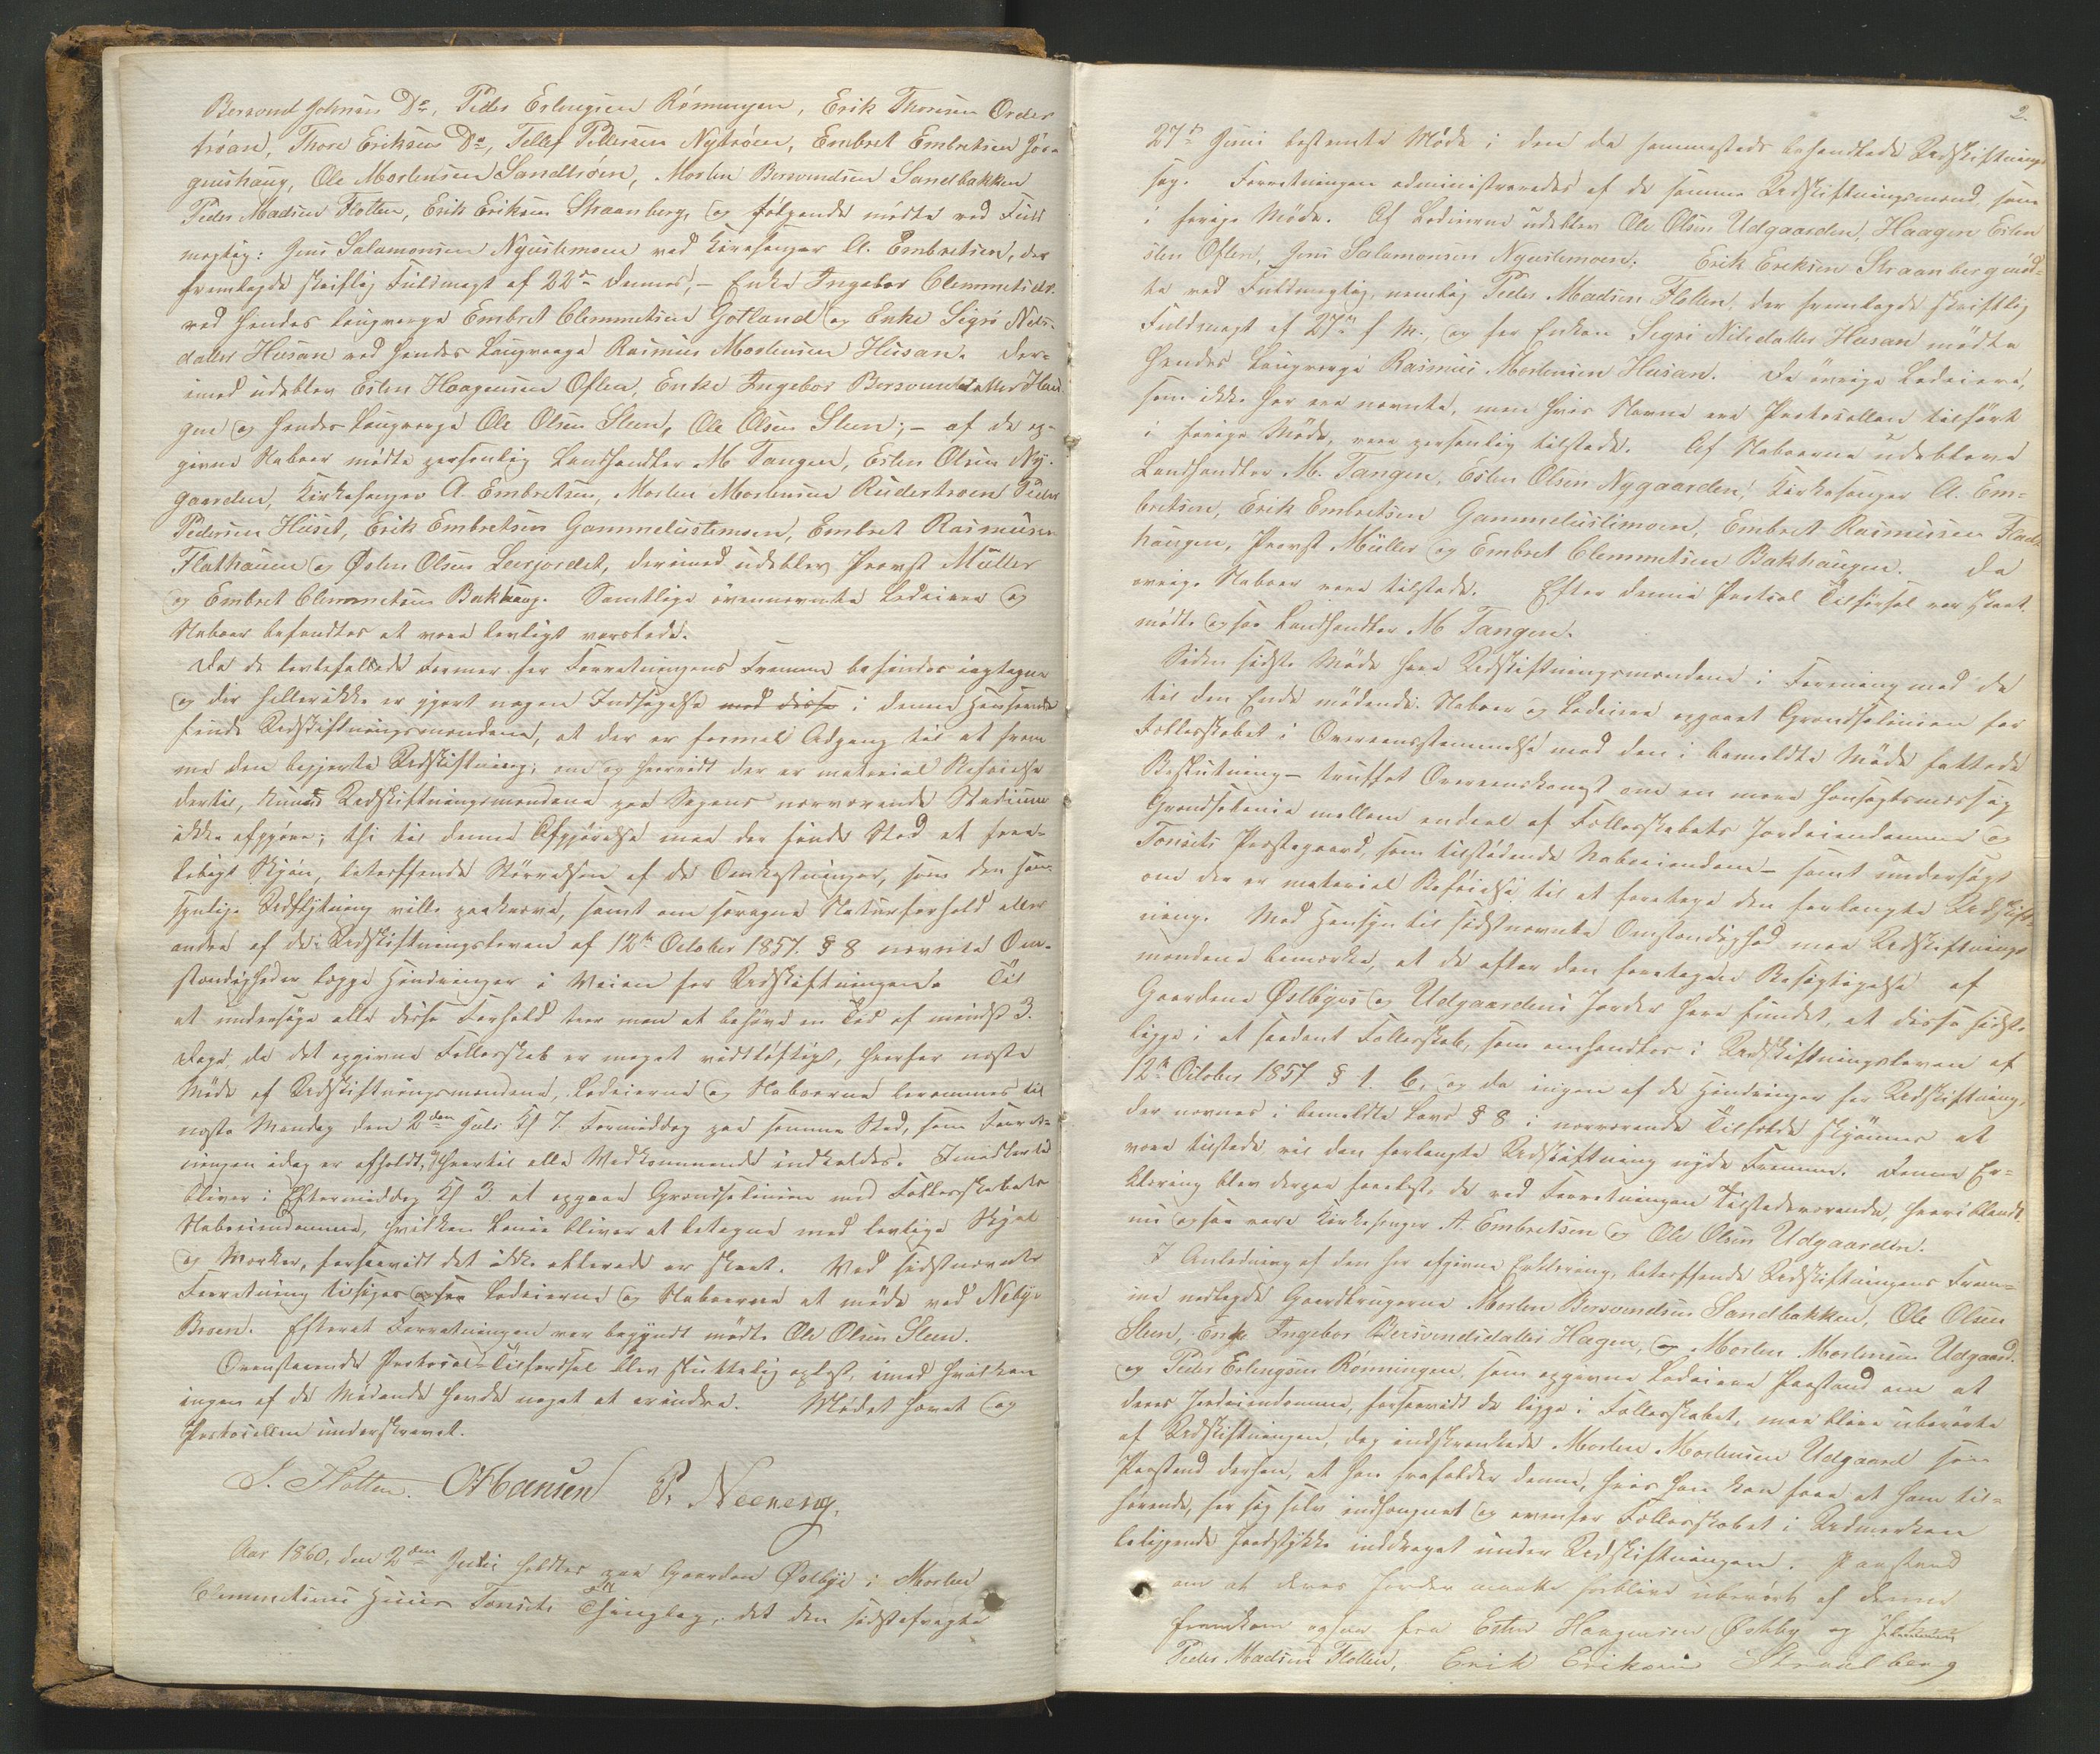 Bersvend Johnsen Do, Peder Erlengsen Rønningen, Erik Thoresen Order
trøan, Thore Eriksen Do, Tellef Pedersen Nytrøen, Embret Embretsen Jør-
gneshaug, Ole Mortensen Sandtrøen, Morten Bersvendsen Sandbakken
Peder Madsen Flotten, Erik Eriksen Straanberg, og følgende mødte ved Fuld
mægtig: Jens Salamonsen Nyustumoen ved Kirkesanger A. Embretsen, der
fremlagde skriftlig Fuldmagt af 22de dennes, – Enke Ingebor Clemmetsdr.
ved hendes Laugværge Embret Clemmetsen Gotland og Enke Sigri Nils-
datter Husan ved hendes Laugværge Rasmus Mortensen Husan. Der-
imod udeblev Esten Haagensen Østen, Enke Ingebor Bersvendsdatter Hau
gen og hendes Laugværge Ole Olsen Steen, Ole Olsen Steen; – af de op-
givne Naboer mødte personlig Landhandler M Tangen, Esten Olsen Ny-
gaarden, Kirkesanger A. Embretsen, Morten Mortensen Rudertroen Peder
Pedersen Huset, Erik Embretsen Gammelustumoen, Embret Rasmusen
Flathauen og Østen Olsen Leerjordet, derimod udeblev Provst Müller
og Embret Clemmetsen Bakhaug. Samtlige ovennævnte Lodeiere og
Naboer befandtes at være lovligt varslede.
Da de lovbefalede Former for Forretningens Fremme befindes iagttagne
og der hellerikke er gjort nogen Indsigelse med disse i denne Henseende
fandt Udskiftningsmændene, at der er formel Adgang til at frem
me den begjerte Udskiftning; om og hvorvidt der er material Beføielse
dertil, kunde Udskiftningsmændene paa Sagens nærværende Stadium
ikke afgjøre; thi til denne Afgjørelse maa der finde Sted et fore-
løbigt Skjøn, betræffende Størrelsen af de Omkostninger, som den for-
synlige Udskiftning ville paakræve, samt om særegne Naturforhold eller
andre af de i Udskiftningsloven af 12te October 1857 § 8 nævnte Om-
stændigheder lægge Hindringer i Veien for Udskiftningen. Til
at undersøge alle disse Forhold troer man at behøve en Tid af mindst 3.
Dage, da det opgivne Fællesskab er meget vidtløftigt, hvorfor næste
Møde af Udskiftningsmændene, Lodeierne og Naboerne berammes til
næste Mandag den 2den Juli Kl 7. Formiddag paa samme Sted, som Forret-
ningen idag er afholdt, og hvortil alle Vedkommende indkaldes. Imidlertid
bliver i Eftermiddag Kl 3. at opgaae Grændselinien med Fællesskabets
Naboeiendomme, hvilken Linie bliver at betegne med lovlige Skjel
og Mærker, forsaavidt det ikke allerede er skeet. Ved sidstnævnte
Forretning tilsiges ogsaa Lodeierne og Naboerne at møde ved Nebye
Broen. Efterat Forretningen var begyndt mødte Ole Olsen Steen.
Ovenstaaende Protocol-Tilførsel blev sluttelig oplæst, imod hvilken
ingen af de Mødende havde noget at erindre. Mødet hævet og
Protocollen underskrevet.
S. Flotten. O Hansen P. Neeneng.
Aar 1860, den 2den Juli holdtes paa Gaarden Østbye i Morten
Clemmetsens Huus Tønsets Thinglag, det den sidstafvigte
2.
27de Juni bestemte Møde i den da sammesteds behandlede Udskiftnings
sag. Forretningen administreredes af de samme Udskiftningsmænd, som
i forrige Møde. Af Lodeierne udeblev Ole Olsen Udgaarden, Haagen Esten
sten Østen, Jens Salamonsen Nyustumoen. Erik Eriksen Straanberg mød-
te ved Fuldmægtig, nemlig Peder Madsen Flotten, der fremlagde skriftlig
Fuldmagt af 27de f. M., og for Enken Sigri Nilsdatter Husan mødte
hendes Laugværge Rasmus Mortensen Husan. De øvrige Lodeiere,
som ikke her ere nævnte, men hvis Navne ere Protocollen tilført
i forrige Møde, vare personlig tilstede. Af Naboerne udebleve
Landhandler M. Tangen, Esten Olsen Nygaarden, Kirkesanger A. Em-
bretsen, Erik Embretsen Gammelustumoen, Embret Rasmusen Flat
haugen, Provst Müller og Embret Clemmetsen Bakhaugen. De
øvrige Naboer vare tilstede. Efter denne Protocol Tilførsel var skeet,
mødte ogsaa Landhandler M Tangen.
Siden sidste Møde have Udskiftningsmændene i Forening med de
til den Ende mødende Naboer og Lodeiere opgaaet Grændselinien for
Fællesskabet i Overensstemmelse med den i bemeldte Møde fattede
Beslutning – truffet Overenskomst om en mere hensigtsmæssig
Grændselinie mellem endeel af Fællesskabets Jordeiendomme og
Tønsets Præstegaard, som tilstødende Naboeiendom – samt undersøgt
om der er material Beføielse til at foretage den forlangte Udskift-
ning. Med Hensyn til sidstnævnte Omstændighed maa Udskiftnings
mændene bemærke, at de efter den foretagne Besigtigelse af
Gaardene Østbyes og Udgaardens Jorder have fundet, at disse sidste
ligge i et saadant Fællesskab, som omhandles i Udskiftningsloven af
12te October 1857 § 1. b, og da ingen af de Hindringer for Udskiftning,
der nævnes i bemeldte Lovs § 8 i nærværende Tilfælde skjønnes at
være tilstede vil den forlangte Udskiftning nyde Fremme. Denne Er-
klæring blev derpaa forelæst, de ved Forretningen Tilstedeværende, hvoriblandt
nu ogsaa vare Kirkesanger A. Embretsen og Ole Olsen Udgaarden.
I Anledning af den her afgivne Erklæring, betræffende Udskiftningens Frem-
me nedlagde Gaardbrugerne Morten Bersvendsen Sandbakken, Ole Olsen
Steen, Enke Ingebor Bersvendsdatter Haugen, og Morten Mortensen Udgaard.
og Peder Erlengsen Rønningen, som opgivne Lodeiere Paastand om at
deres Jordeiendomme, forsaavidt de ligge i Fællesskabet, maa blive uberørte
af Udskiftningen, dog indskrænkede Morten Mortensen Udgaard sin
Paastand derhen, at han frafalder denne, hvis han kan faae et ham til-
hørende, for sig selv indhegnet og ovenfor Fællesskabet i Udmarken
beliggende Jordstykke inddraget under Udskiftningen. Paastand
om at deres Jorder maatte forblive uberørt af denne
fremkom ogsaa fra Esten Haagensen Østby og
Peder Madsen Flotten, Erik Eriksen Straalberg